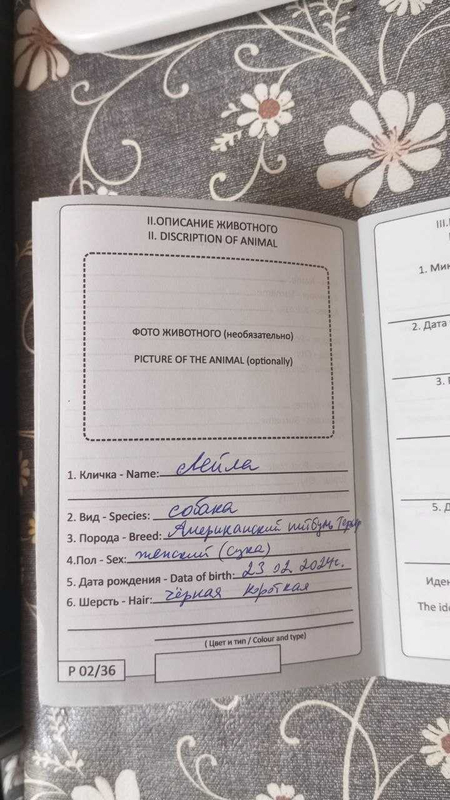 II.ОПИСАНИЕ ЖИВОТНОГО
II. DISCRIPTION OF ANIMAL
ФОТО ЖИВОТНОГО (необязательно)
PICTURE OF THE ANIMAL (optionally)
1. Кличка - Name: Лейла
2. Вид - Species: собака
3. Порода - Breed: Американский питбуль Терьер
4.Пол - Sex: женский (сука)
5. Дата рождения - Data of birth: 23 02. 2024г.
6. Шерсть - Hair: чёрная короткая
( Цвет и тип / Colour and type)
P 02/36
III.
1. Ми
2. Дата
3.
5. Д
Иден
The ide